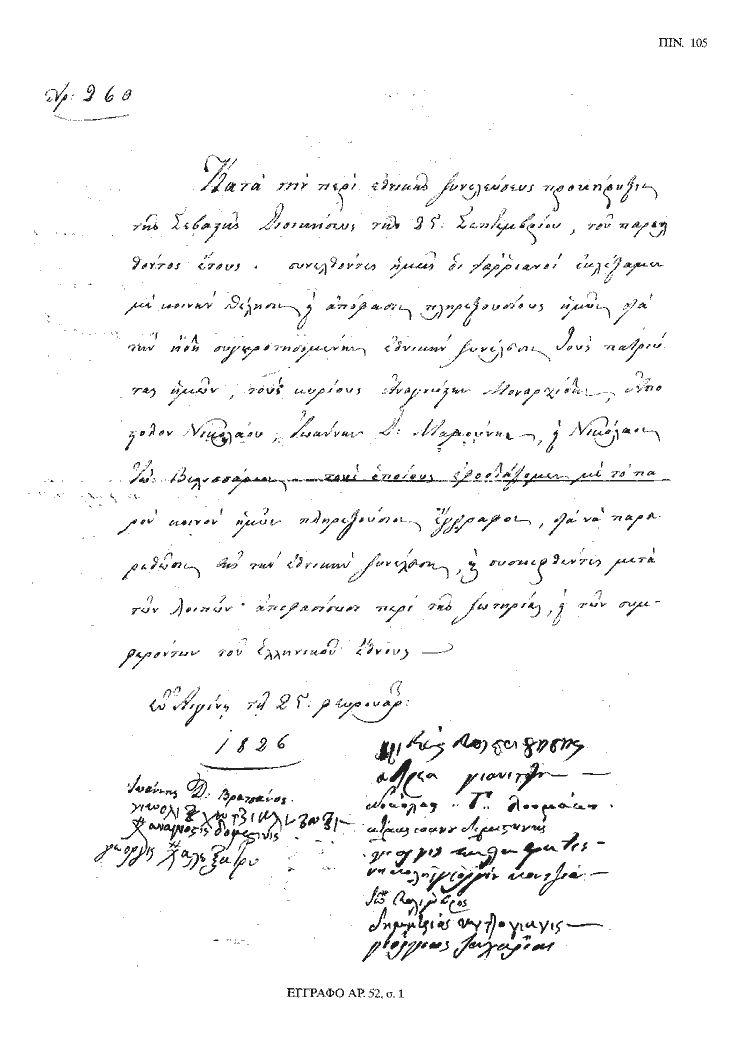 ΠΙΝ. 105
Νρ: 260
Κατὰ τὴν περὶ ἐθνικῆς συνελεύσεως προκήρυξιν
τῆς Σεβαστῆς Διοικήσεως τῆς 25: Σεπτεμβρίου, τοῦ παρελ
θόντος ἔτους. συνελθόντες ἡμεῖς οἱ ψαρριανοὶ ἐκλέξαμεν
μὲ κοινὴν θέλησιν ἢ ἀπόφασιν πληρεξουσίους ἡμῶν διὰ
τὴν ἤδη συγκροτησομένην ἐθνικὴν συνέλευσιν τοὺς πατριώ
τας ἡμῶν, τοὺς κυρίους ἀναγνώστην Μοναρχίδην, Ἀπό
στολον Νικολάου, Ἰωάννην Δ: Μαμούνην, ἢ Νικόλαον
Ἰω: Βελισσάριον τοὺς ὁποίους ἐφοδιάζομεν μὲ τὸ πα
ρὸν κοινὸν ἡμῶν πληρεξούσιον ἔγγραφον, διὰ νὰ παρα
εἰς τὴν ἐθνικὴν συνέλευσιν, ἢ συσκεφθέντες μετὰ
τῶν λοιπῶν ἀποφασίσωσι περὶ τῆς σωτηρίας, ἢ τῶν συμ-
φερόντων τοῦ ἑλληνικοῦ ἔθνους —
ἐν Αἰγίνῃ τῇ 25: φευρουαρ:
1826
Ἰωάννης Δ: Βρατσάνος
χ αναγνοστις δομεστινις
γεοργις χ αλεξαδρυ
γιανιτζη —
νικόλας Γ
Ἰω καλιμέρος
δημητριός —
γιόργιος ζαχαρίας
ΕΓΓΡΑΦΟ ΑΡ. 52, σ. 1